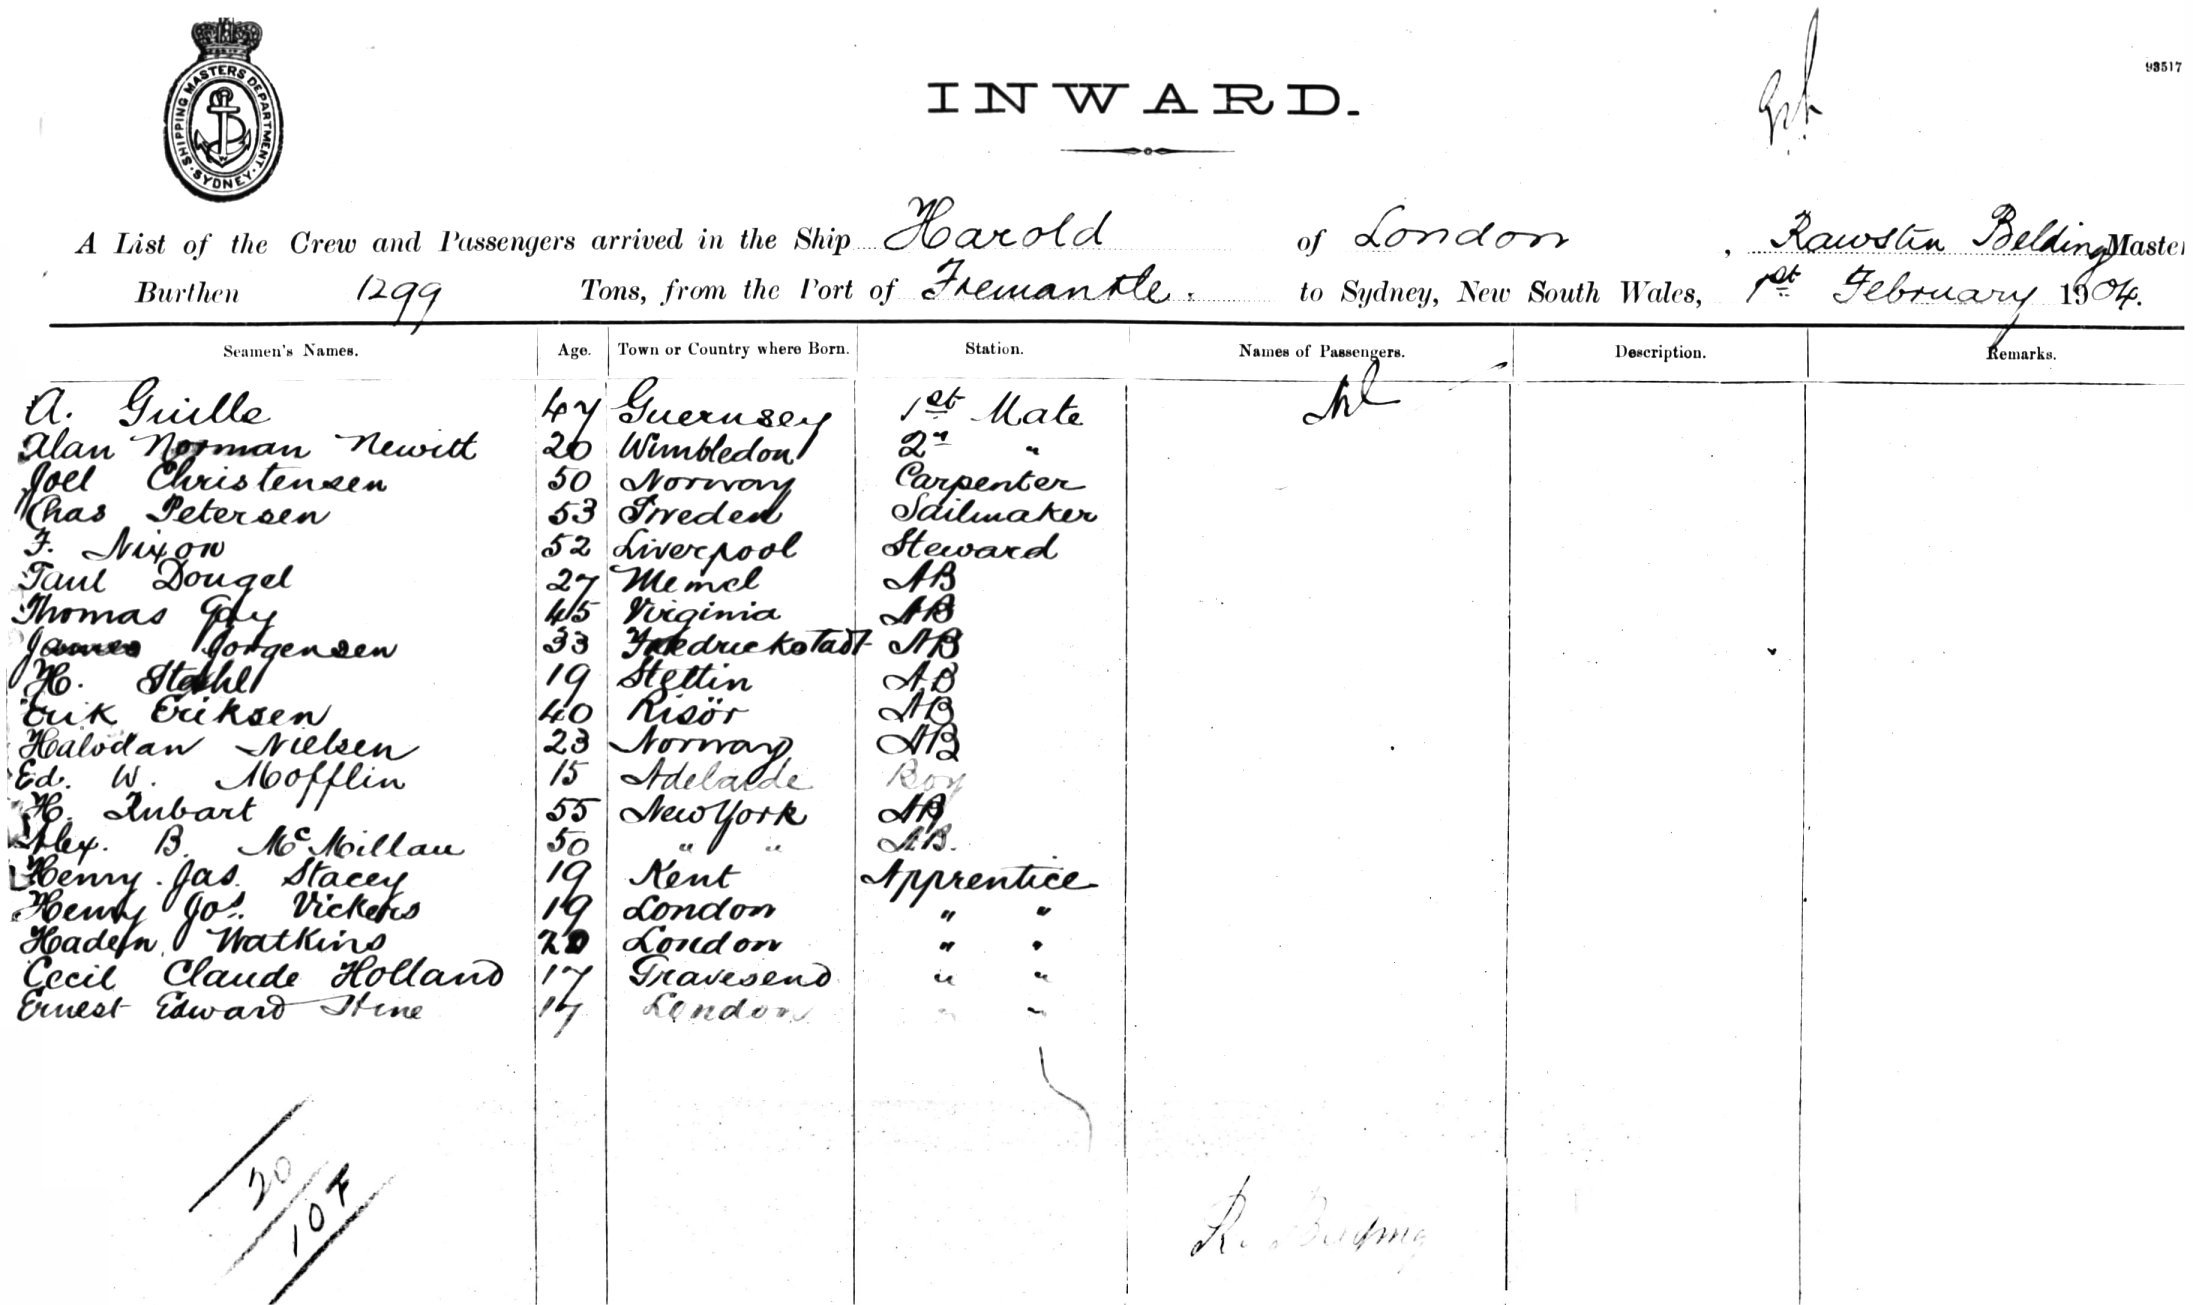 SHIPPING MASTERS DEPARTMENT
SYDNEY
93517
INWARD.
A List of the Crew and Passengers arrived in the Ship Harold of London, Rawstin Belding Master
Burthen 1299 Tons, from the Port of Fremantle. to Sydney, New South Wales, 1st February 1904.
Seamen's Names. Age. Town or Country where Born. Station. Names of Passengers. Description. Remarks.
A. Guille 47 Guernsey 1st Mate Nil
Alan Norman Newitt 20 Wimbledon 2nd "
Joel Christensen 50 Norway Carpenter
Chas Petersen 53 Sweden Sailmaker
F. Nixon 52 Liverpool Steward
Paul Dougel 27 Memel AB
Thomas Gay 45 Virginia AB
James Jorgensen 33 Fredrickstadt AB
H. Stahl 19 Stettin AB
Erik Eriksen 40 Risör AB
Halvdan Nielsen 23 Norway AB
Ed. W. Mofflin 15 Adelaide Boy
H. Kubart 55 New York AB
Alex. B. McMillan 50 " " AB.
Henry Jas. Stacey 19 Kent Apprentice
Henry Jos. Vickers 19 London " "
Haden Watkins 20 London " "
Cecil Claude Holland 17 Gravesend " "
Ernest Edward Hine 17 London " "
20
10 F
R. Belding